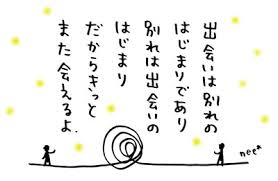 出会いは別れの
はじまりであり
別れは出会いの
はじまり
だからきっと
また会えるよ.